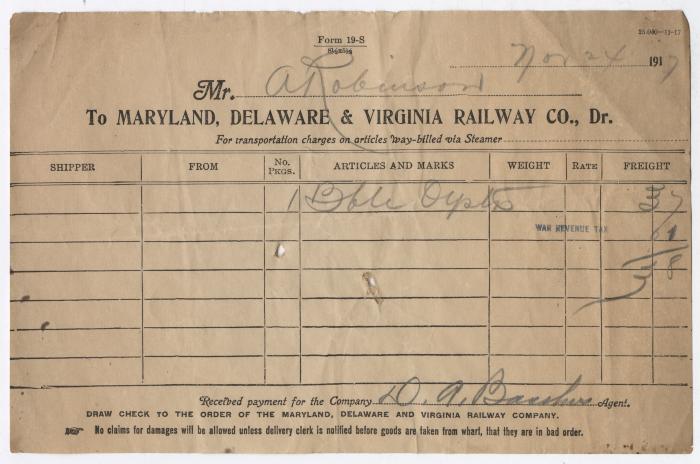 Form 19-S
8½x5¼
25 000—11-17
Nov 24 1917
Mr. A Robinson
To MARYLAND, DELAWARE & VIRGINIA RAILWAY CO., Dr.
For transportation charges on articles way-billed via Steamer
SHIPPER FROM No. PKGS. ARTICLES AND MARKS WEIGHT RATE FREIGHT
1 Bble Oysts 37
WAR REVENUE TAX 01
38
Received payment for the Company D. A. Agent.
DRAW CHECK TO THE ORDER OF THE MARYLAND, DELAWARE AND VIRGINIA RAILWAY COMPANY.
No claims for damages will be allowed unless delivery clerk is notified before goods are taken from wharf, that they are in bad order.